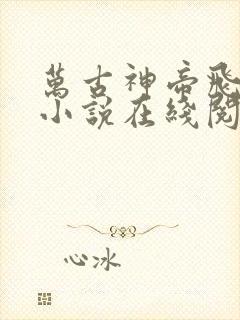 萬古神帝飛
小說在綫閱
心冰